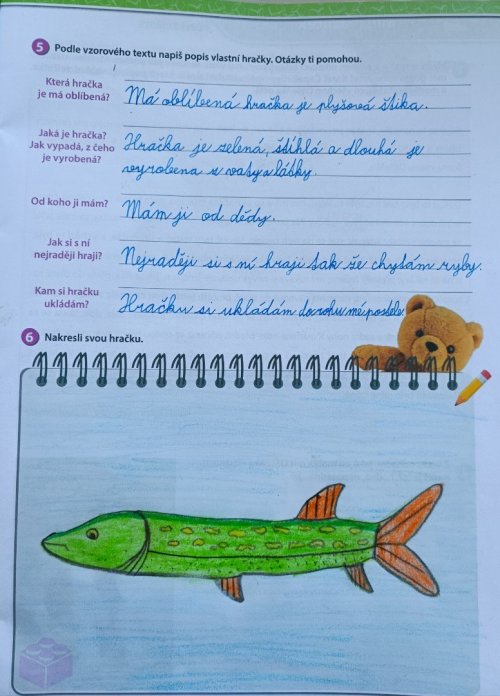 5 Podle vzorového textu napiš popis vlastní hračky. Otázky ti pomohou.
Která hračka
je má oblíbená?
Má oblíbená hračka je plyšová štika.
Jaká je hračka?
Jak vypadá, z čeho
je vyrobená?
Hračka je zelená, štíhlá a dlouhá je
vyrobena z vaty a látky.
Od koho ji mám?
Mám ji od dědy.
Jak si s ní
nejraději hraji?
Nejraději si s ní hraji tak že chytám ryby.
Kam si hračku
ukládám?
Hračku si ukládám do rohu mé postele.
6 Nakresli svou hračku.